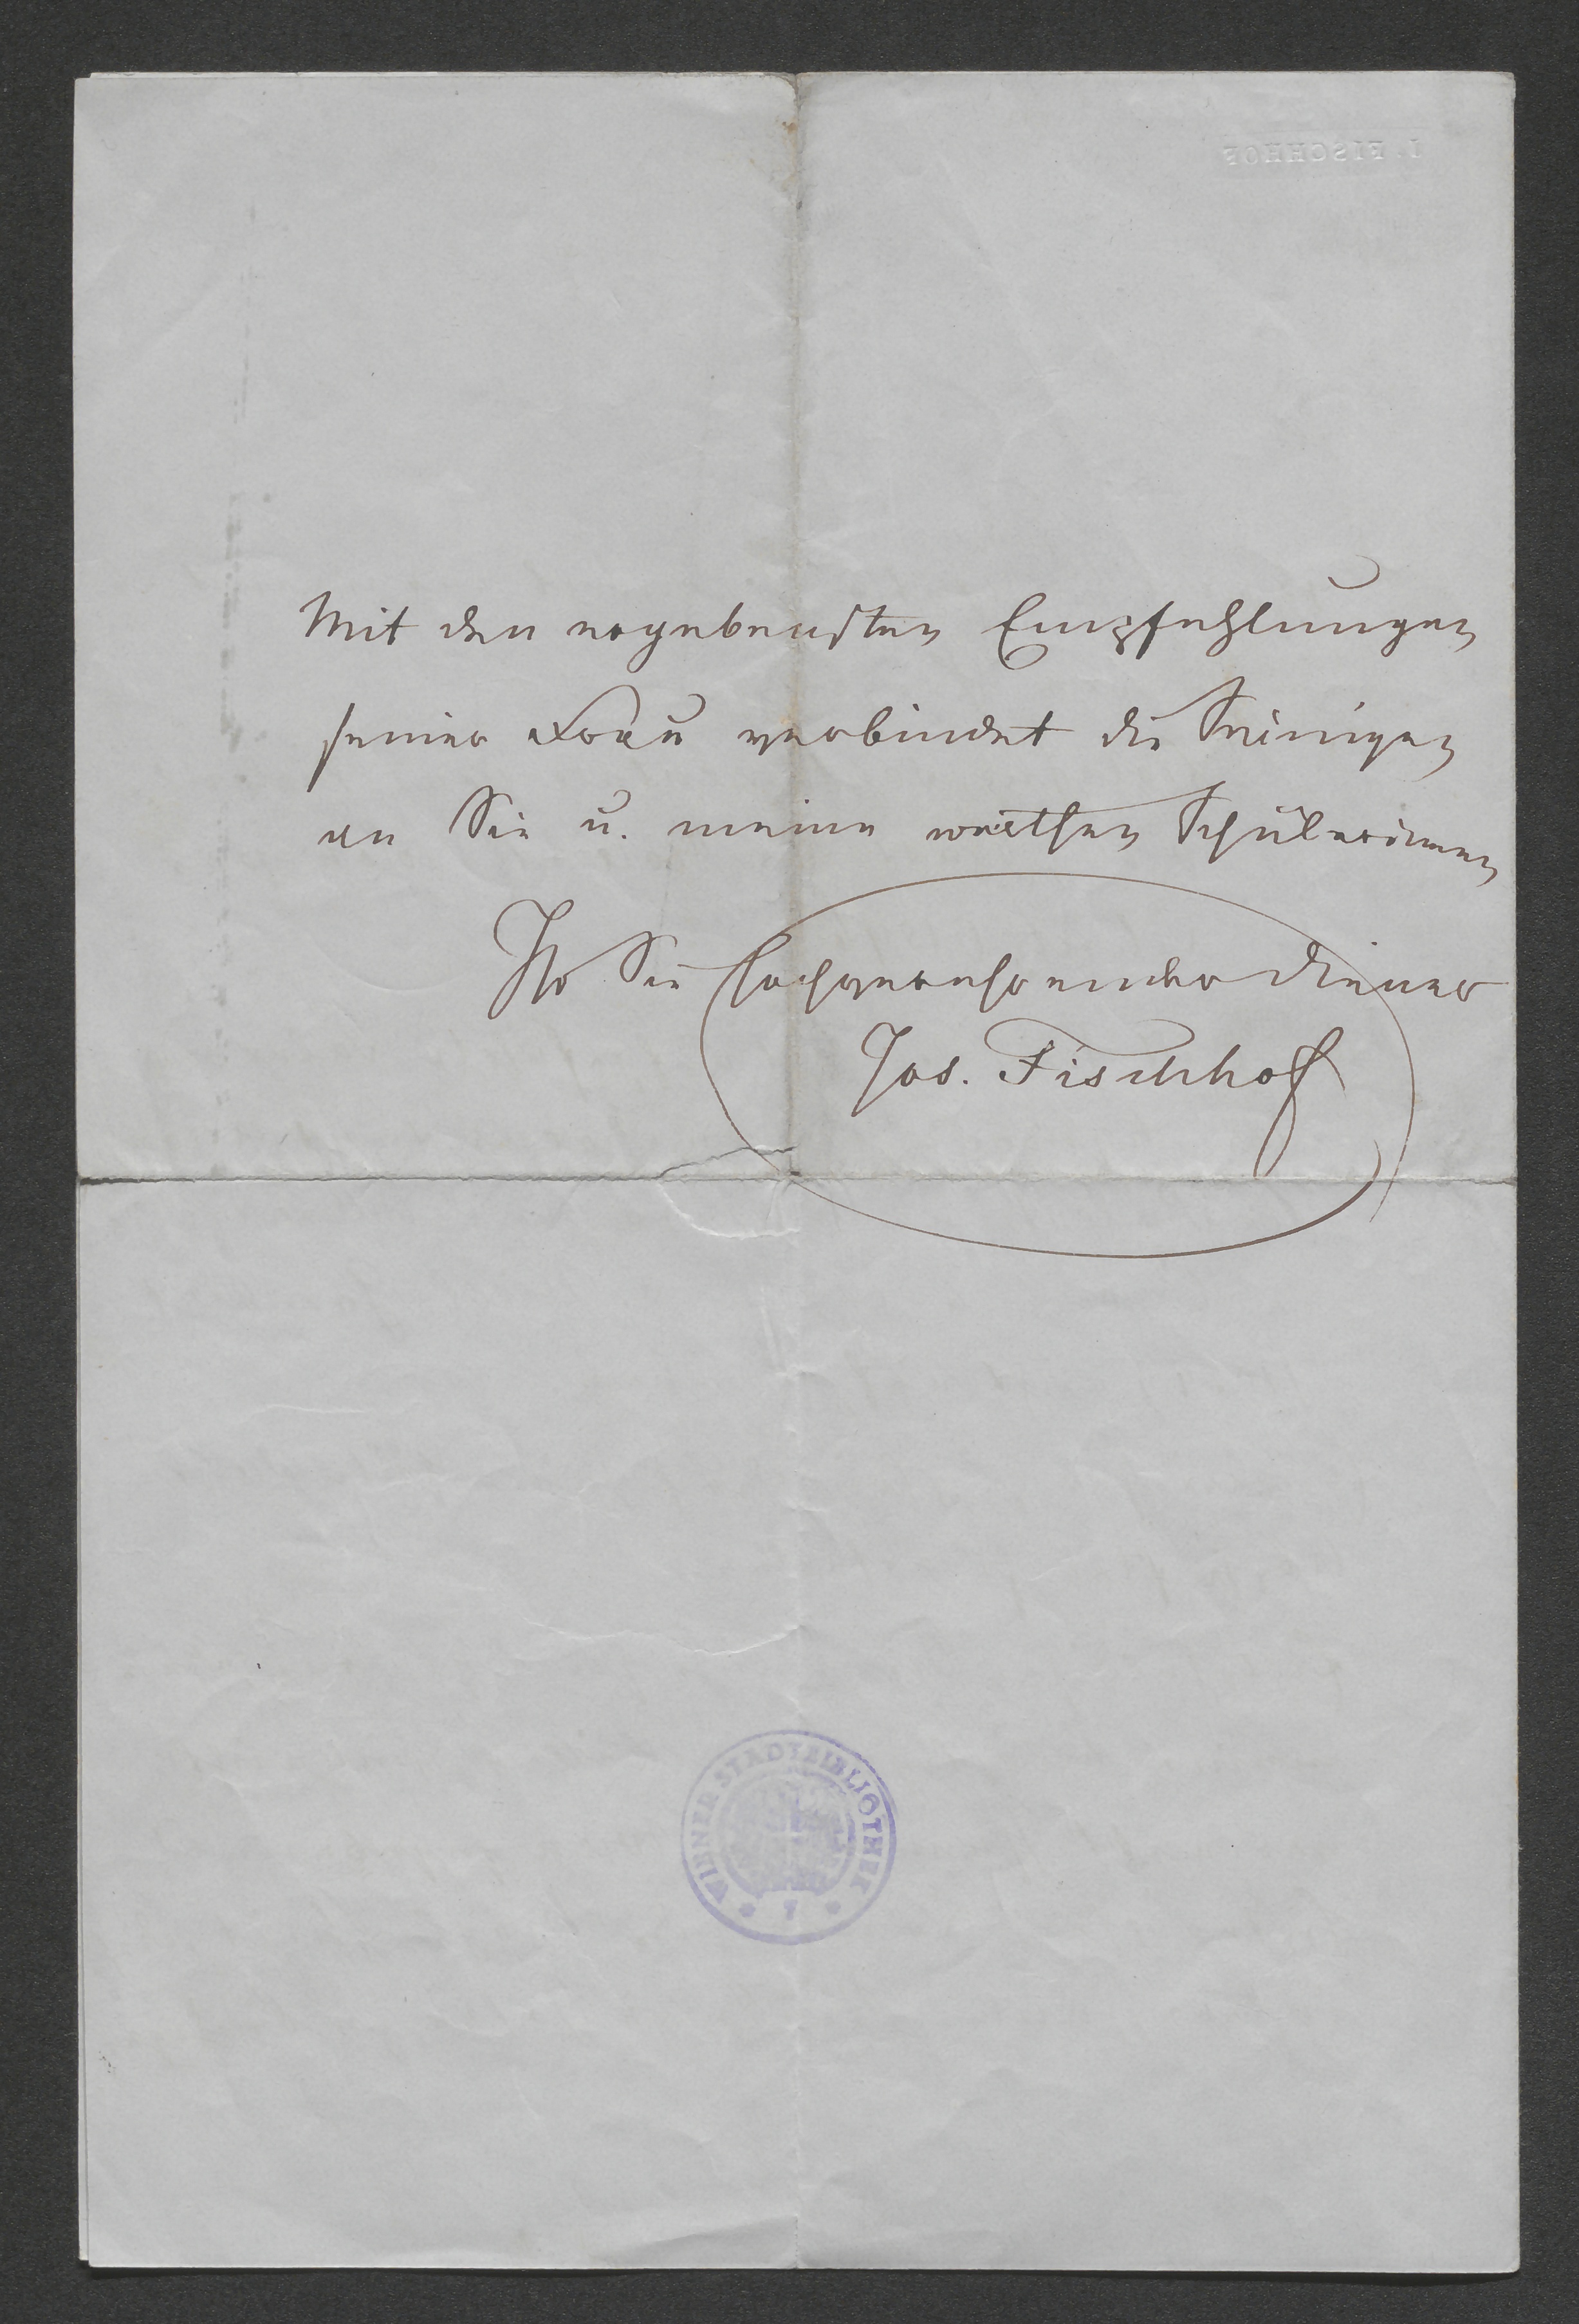 J. FISCHHOF
Mit den ergebensten Empfehlungen
seiner Frau verbindet die Seinigen
an Sie u. meine werthen Schülerinnen
Ihr Sie hochverehrender Diener
Jos. Fischhof
WIENER STADTBIBLIOTHEK
* 7 *